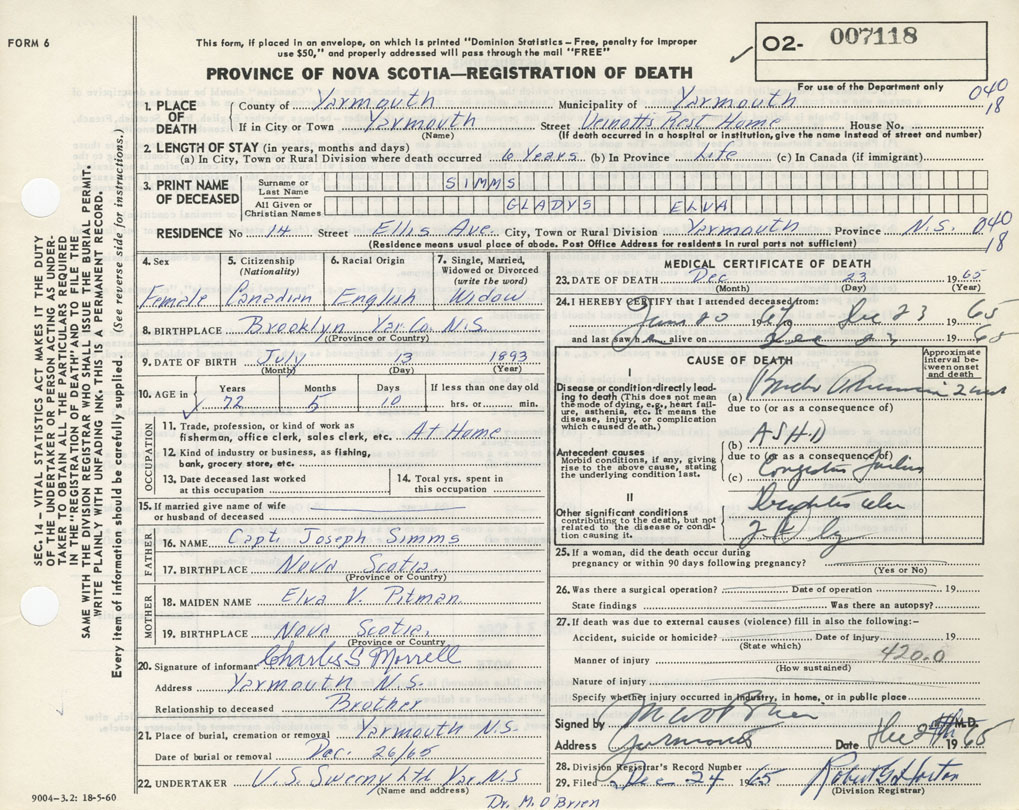 FORM 6
This form, if placed in an envelope, on which is printed "Dominion Statistics—Free, penalty for improper
use $50," and properly addressed will pass through the mail "FREE"
PROVINCE OF NOVA SCOTIA—REGISTRATION OF DEATH
O2- 007118
For use of the Department only
040
18
1. PLACE OF DEATH
County of Yarmouth Municipality of Yarmouth
If in City or Town Yarmouth Street Rest Home House No.
(Name) (If death occurred in a hospital or institution, give the name instead of street and number)
2. LENGTH OF STAY (in years, months and days)
(a) In City, Town or Rural Division where death occurred 6 Years (b) In Province Life (c) In Canada (if immigrant)
3. PRINT NAME OF DECEASED
Surname or Last Name SIMMS
All Given or Christian Names GLADYS ELVA
RESIDENCE No 14 Street Ellis Ave. City, Town or Rural Division Yarmouth Province N.S. 040
18
(Residence means usual place of abode. Post Office Address for residents in rural parts not sufficient)
4. Sex
Female
5. Citizenship
(Nationality)
Canadian
6. Racial Origin
English
7. Single, Married,
Widowed or Divorced
(write the word)
Widow
8. BIRTHPLACE Brooklyn Yar. Co. N.S.
(Province or Country)
9. DATE OF BIRTH July 13 1893
(Month) (Day) (Year)
10. AGE in Years Months Days If less than one day old
72 5 10 hrs. or min.
OCCUPATION
11. Trade, profession, or kind of work as
fisherman, office clerk, sales clerk, etc. At Home
12. Kind of industry or business, as fishing,
bank, grocery store, etc.
13. Date deceased last worked
at this occupation
14. Total yrs. spent in
this occupation
15. If married give name of wife
or husband of deceased
FATHER
16. NAME Capt. Joseph Simms
17. BIRTHPLACE Nova Scotia.
(Province or Country)
MOTHER
18. MAIDEN NAME Elva V. Pitman
19. BIRTHPLACE Nova Scotia.
(Province or Country)
20. Signature of informant Charles S Morrell
Address Yarmouth N.S.
Relationship to deceased Brother
21. Place of burial, cremation or removal Yarmouth N.S.
Date of burial or removal Dec. 26/65
22. UNDERTAKER V.S. Sweeny Ltd Yar. N.S
(Name and address)
Dr. M. O'Brien
9004-3.2: 18-5-60
MEDICAL CERTIFICATE OF DEATH
23. DATE OF DEATH Dec 23 1965
(Month) (Day) (Year)
24. I HEREBY CERTIFY that I attended deceased from:
20 Dec 23 1965
and last saw h alive on Dec 23 1965
CAUSE OF DEATH
Approximate interval between onset and death
I
Disease or condition directly leading to death (This does not mean the mode of dying, e.g., heart failure, asthenia, etc. It means the disease, injury, or complication which caused death.)
(a)
due to (or as a consequence of)
(b) ASHD
due to (or as a consequence of)
Antecedent causes
Morbid conditions, if any, giving rise to the above cause, stating the underlying condition last.
(c) Congestive failure
II
Other significant conditions
contributing to the death, but not related to the disease or condition causing it.
25. If a woman, did the death occur during
pregnancy or within 90 days following pregnancy?
(Yes or No)
26. Was there a surgical operation? Date of operation 19
State findings Was there an autopsy?
27. If death was due to external causes (violence) fill in also the following:—
Accident, suicide or homicide? Date of injury 19
(State which)
Manner of injury 420.0
(How sustained)
Nature of injury
Specify whether injury occurred in industry, in home, or in public place
Signed by M O'Brien M.D.
Address Yarmouth Date Dec 24th 1965
28. Division Registrar's Record Number
29. Filed Dec 24 1965 Robert G. Horton
(Division Registrar)
SEC. 14 – VITAL STATISTICS ACT MAKES IT THE DUTY
OF THE UNDERTAKER OR PERSON ACTING AS UNDER-
TAKER TO OBTAIN ALL THE PARTICULARS REQUIRED
IN THE "REGISTRATION OF DEATH" AND TO FILE THE
SAME WITH THE DIVISION REGISTRAR WHO SHALL ISSUE THE BURIAL PERMIT.
WRITE PLAINLY WITH UNFADING INK, THIS IS A PERMANENT RECORD.
Every item of information should be carefully supplied. (See reverse side for instructions.)